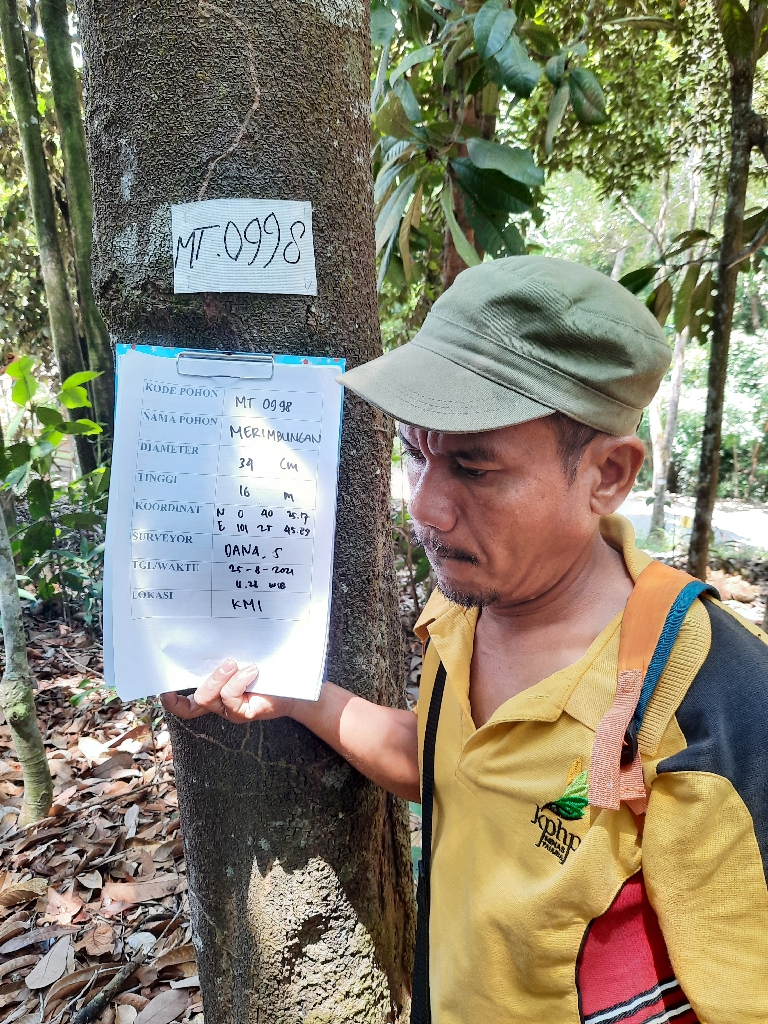 MT.0998
KODE POHON MT 0998
NAMA POHON MERIMBUNGAN
DIAMETER 34 CM
TINGGI 16 M
KOORDINAT N 0 40 25.17
E 101 25 45.89
SURVEYOR DANA. S
TGL/WAKTU 25-8-2021
11.28 WIB
LOKASI KMI
kphp
MINAS
TAHURA